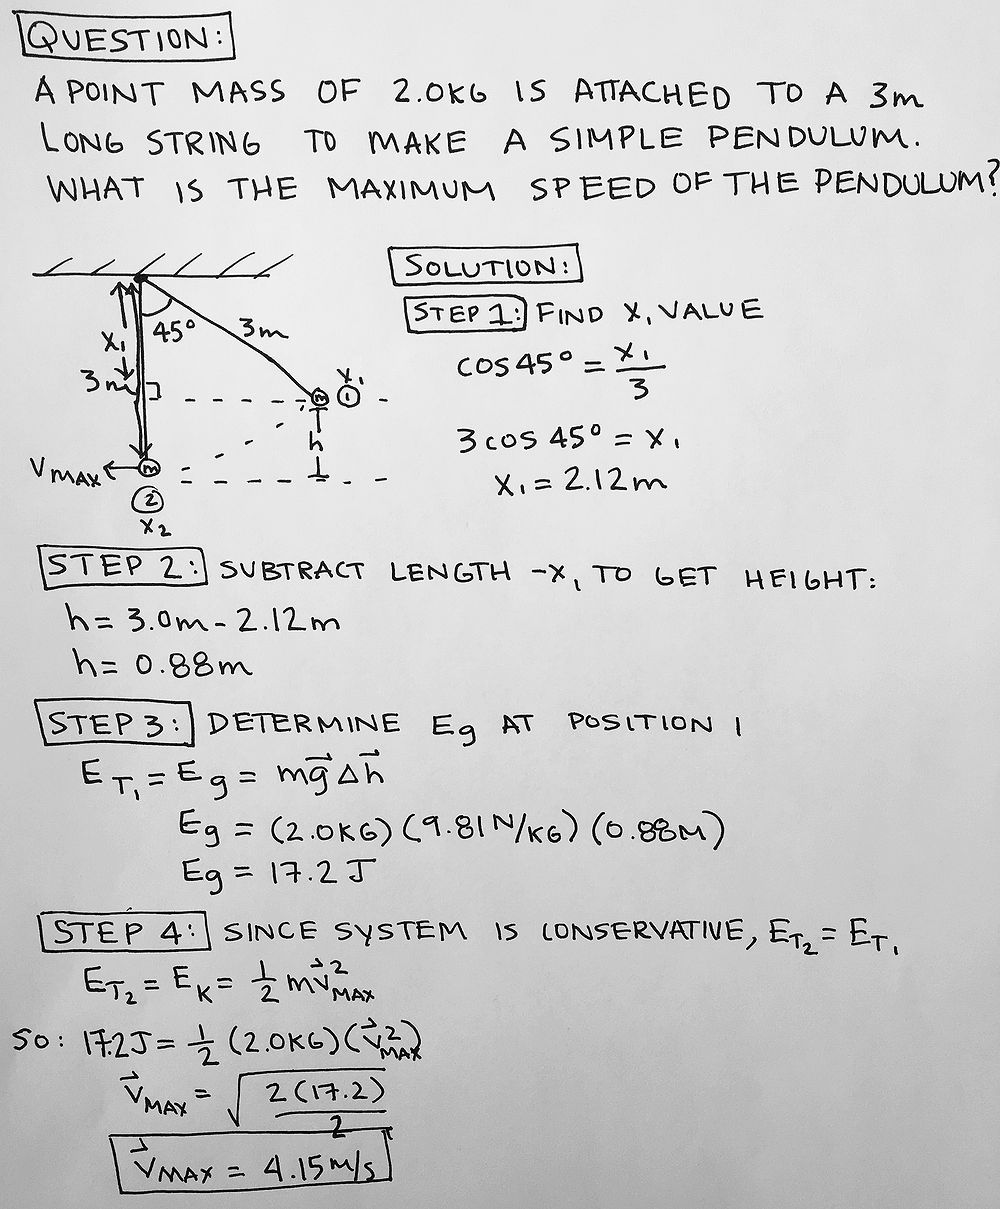 QUESTION:
A POINT MASS OF 2.0KG IS ATTACHED TO A 3m
LONG STRING TO MAKE A SIMPLE PENDULUM.
WHAT IS THE MAXIMUM SPEED OF THE PENDULUM?
X₁
45°
3m
3m
X₁
m
①
h
V MAX
m
②
X₂
SOLUTION:
STEP 1: FIND X₁ VALUE
cos 45° = X₁/3
3 cos 45° = X₁
X₁ = 2.12m
STEP 2: SUBTRACT LENGTH -X₁ TO GET HEIGHT:
h = 3.0m - 2.12m
h = 0.88m
STEP 3: DETERMINE Eg AT POSITION 1
E T₁ = E g = mg⃗ Δh⃗
Eg = (2.0KG)(9.81N/KG)(0.88M)
Eg = 17.2 J
STEP 4: SINCE SYSTEM IS CONSERVATIVE, ET₂ = ET₁
ET₂ = EK = 1/2 mv⃗²MAX
SO: 17.2J = 1/2 (2.0KG)(v⃗²MAX)
v⃗MAX = √2(17.2)/2
v⃗MAX = 4.15m/s